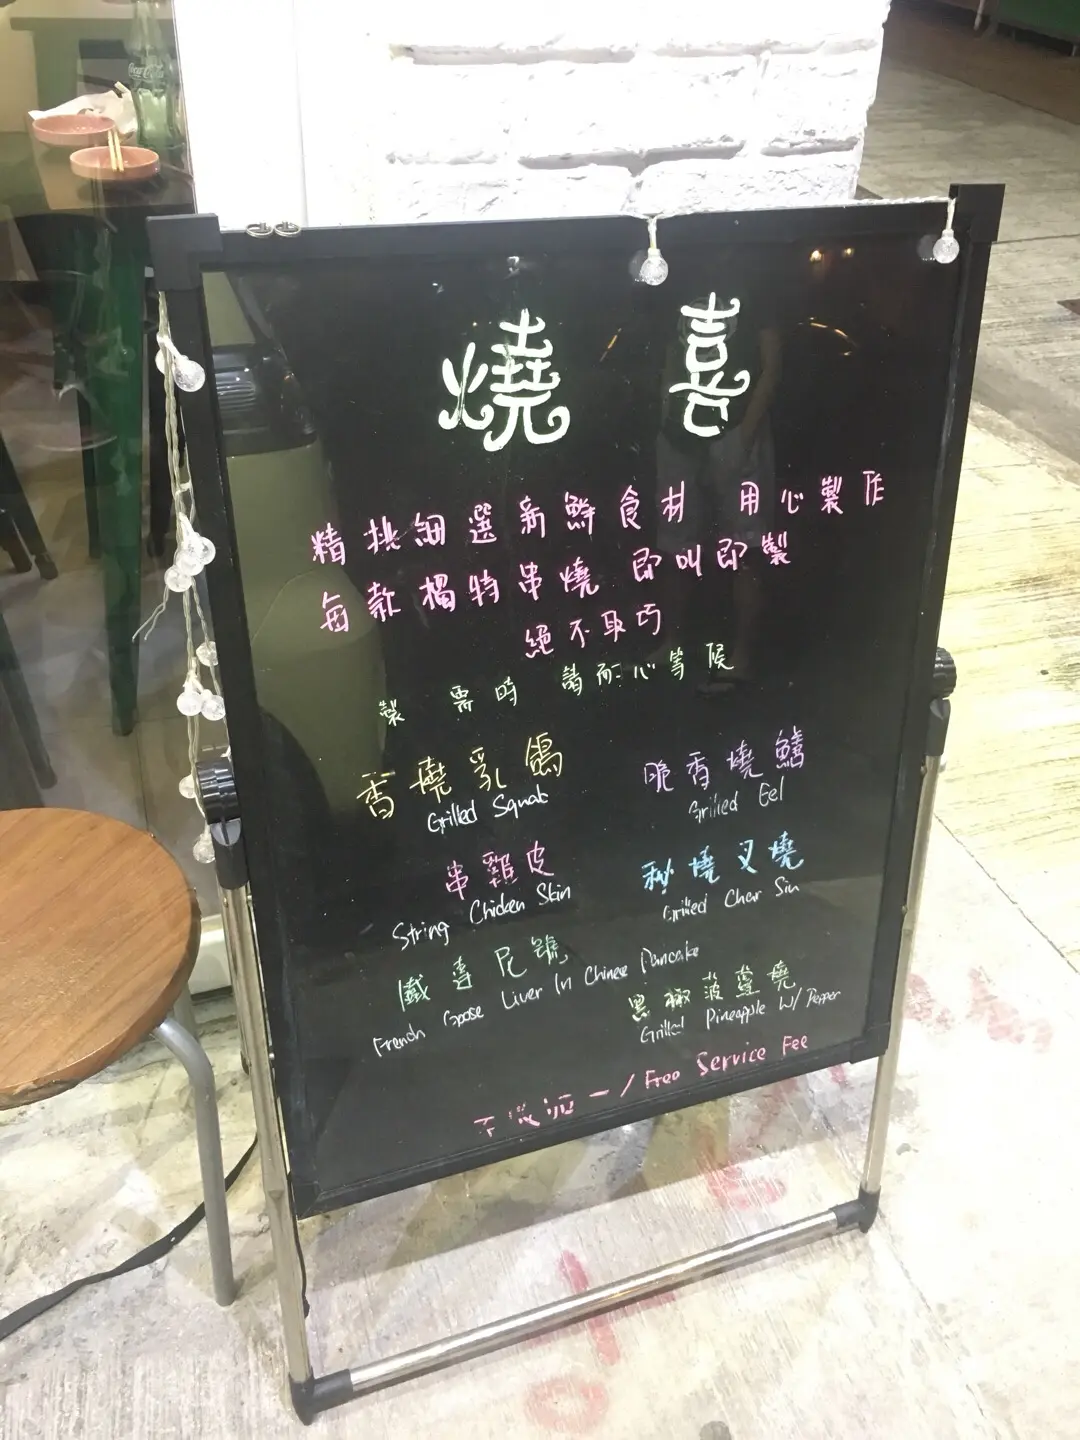 燒 喜
精挑細選新鮮食材 用心製作
每款獨特串燒 即叫即製
絕不取巧
製 需時 請耐心等候
香燒乳鴿
Grilled Squab
脆香燒鱔
Grilled Eel
串雞皮
String Chicken Skin
秘燒叉燒
Grilled Char Siu
French Goose Liver In Chinese Pancake
黑椒菠蘿燒
Grilled Pineapple W/ Pepper
/ Free Service Fee
Coca-Cola